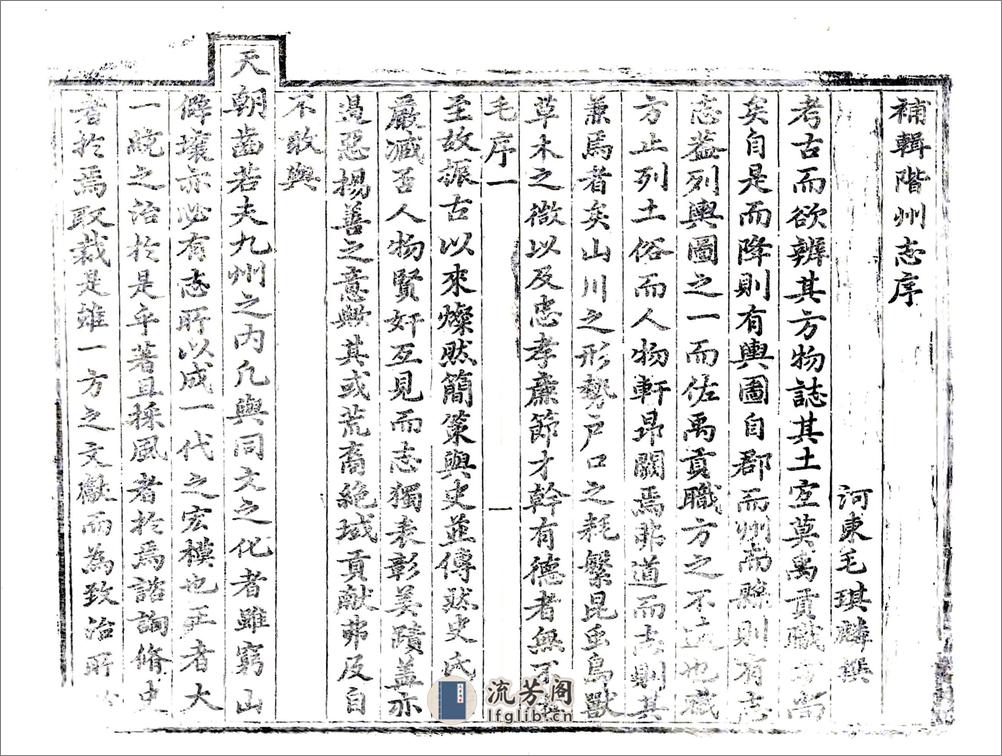 補輯階州志序
河東毛琪麟撰
考古而欲辨其方物誌其土宜莫禹貢職方尚
矣自是而降則有輿圖自郡而州而縣則有志
志蓋列輿圖之一而佐禹貢職方之不逮也職
方止列土俗而人物軒昂闕焉非道而志則其
兼焉者矣山川之形勢戶口之耗繁昆虫鳥獸
草木之微以及忠孝廉節才幹有德者無不
毛序一
一
至故振古以來燦然簡策與史並傳然史氏
嚴臧否人物賢奸互見而志獨表彰美蹟盖亦
遏惡揚善之意歟其或荒裔絶域貢献弗及自
不敢與
天朝齒若夫九州之内凡與同文之化者雖窮山
僻壤亦必有志所以成一代之宏模也王者大
一統之治於是乎著且採風者於焉諮詢脩史
者於焉取裁是雖一方之文獻而為致治所
流芳阁
lfglib.cn